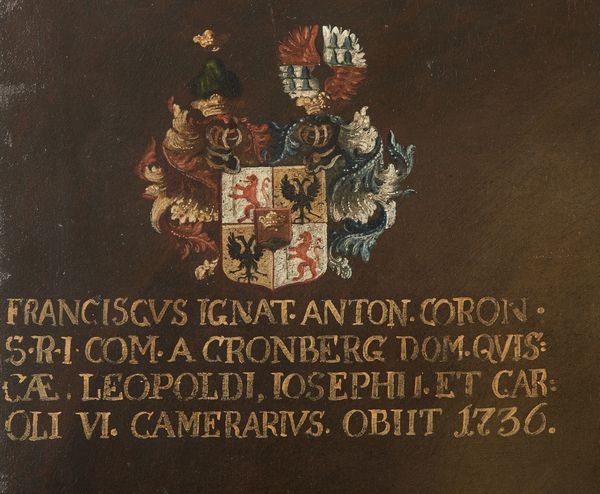 FRANCISCVS IGNAT· ANTON. CORON·
S·R·I· COM· A CRONBERG DOM·QVIS:
CÆ. LEOPOLDI, IOSEPHI I. ET CAR:
OLI VI. CAMERARIVS. OBIIT 1736.